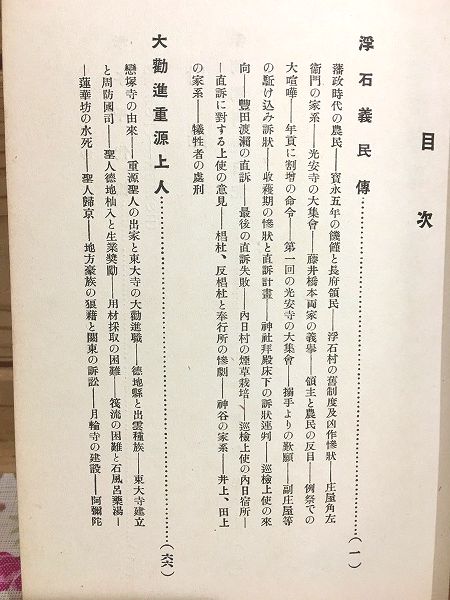 目次
浮石義民傳……(一)
藩政時代の農民――寳永五年の饑饉と長府領民――浮石村の舊制度及凶作慘狀――庄屋角左
衞門の家系――光安寺の大集會――藤井橋本兩家の義擧――領主と農民の反目――例祭での
大喧嘩――年貢に割增の命令――第一回の光安寺の大集會――搦手よりの歎願――副庄屋等
の駈け込み訴狀――收穫期の慘狀と直訴計畫――神社拜殿床下の訴狀連判――巡檢上使の來
向――豐田渡瀨の直訴――最後の直訴失敗――內日村の煙草栽培――巡檢上使の內日宿所――
――直訴に對する上使の意見――椙杜、反椙杜と奉行所の慘劇――神谷の家系――井上、田上
の家系――犧牲者の處刑
大勸進重源上人……(六六)
戀塚寺の由來――重源聖人の出家と東大寺の大勸進職――德地縣と出雲種族――東大寺建立
と周防國司――聖人德地杣入と生業奬勵――用材採取の困難――筏流の困難と石風呂藥湯――
――蓮華坊の水死――聖人歸京――地方豪族の狼藉と關東の訴訟――月輪寺の建設――阿彌陀